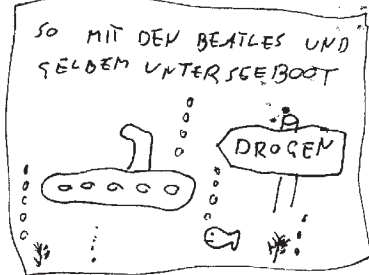 SO MIT DEN BEATLES UND
GELBEM UNTERSEEBOOT
DROGEN